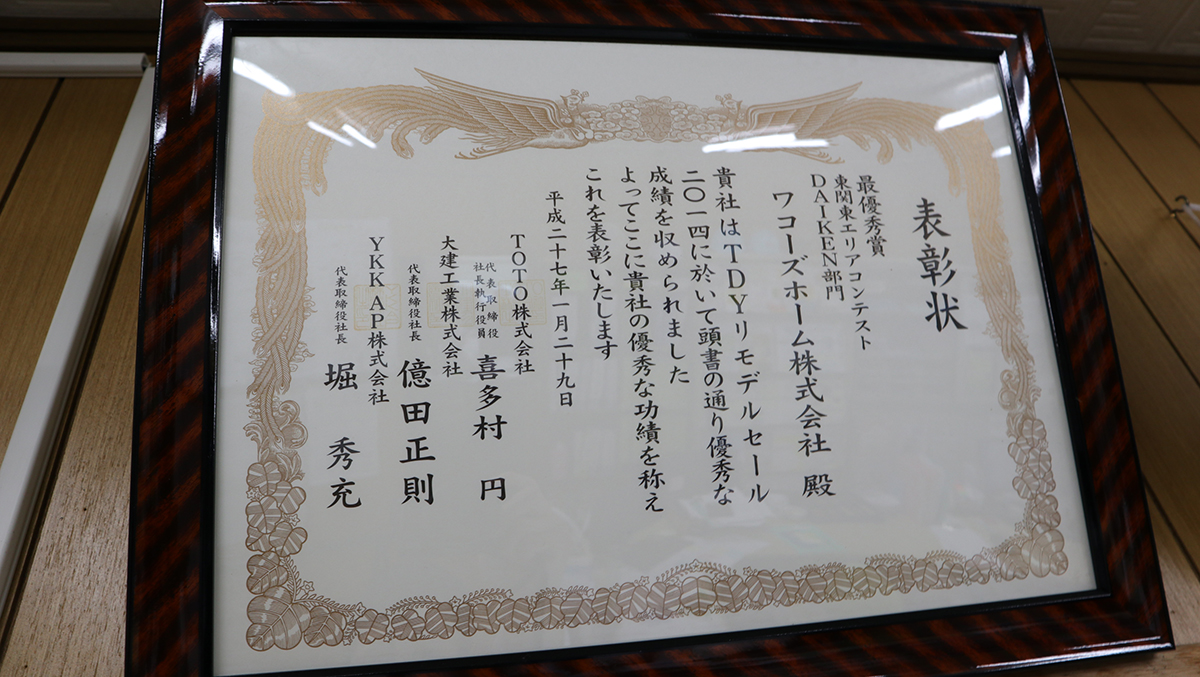 表彰状
最優秀賞
東関東エリアコンテスト
DAIKEN部門
ワコーズホーム株式会社 殿
貴社はTDYリモデルセール
二〇一四に於いて頭書の通り優秀な
成績を収められました
よってここに貴社の優秀な功績を称え
これを表彰いたします
平成二十七年一月二十九日
TOTO株式会社
代表取締役
社長執行役員
喜多村 円
大建工業株式会社
代表取締役社長
億田正則
YKK AP株式会社
代表取締役社長
堀 秀充